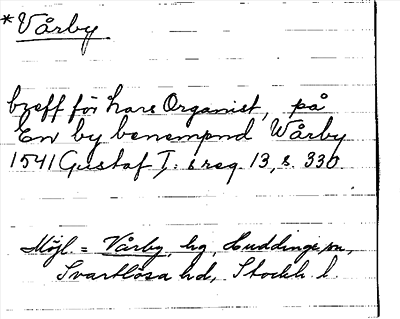 *Vårby
breff för hans Organist, på
En by benempnd Wårby
1541 Gustaf I: s reg. 13, s. 330.
Möjl. = Vårby, by, Huddinge sn,
Svartlösa hd, Stockh. l.